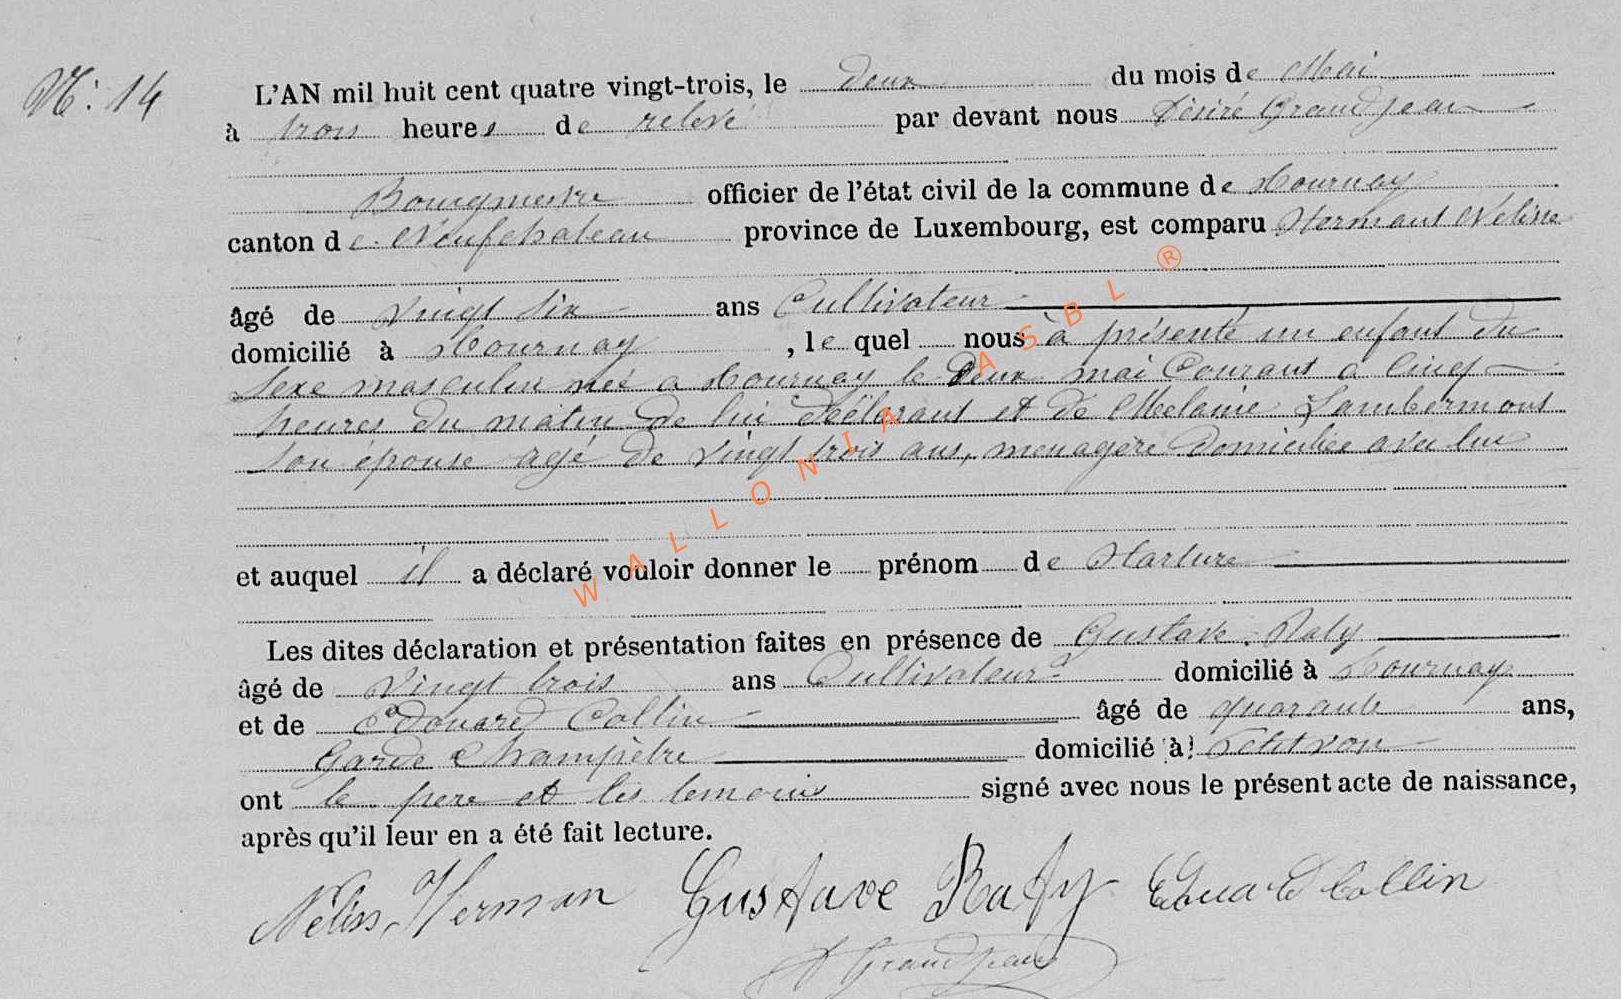 N°: 14
L'AN mil huit cent quatre vingt-trois, le deux du mois de Mai
à trois heures de relevé par devant nous Désiré Grandjean
Bourgmestre officier de l'état civil de la commune de Tournay
canton de Neufchateau province de Luxembourg, est comparu Hermant Nelisse
âgé de vingt six ans Cultivateur
domicilié à Tournay, le quel nous à présenté un enfant du
sexe masculin née a Tournay le Deux mai Courant a Cinq
heures du matin de lui déclarant et de Melanie Lambermont
son épouse agé de vingt trois ans, menagère Domiciliée avec lui
et auquel il a déclaré vouloir donner le prénom de Harture
Les dites déclaration et présentation faites en présence de Gustave Raty
âgé de vingt trois ans Cultivateur domicilié à Tournay
et de Edouard Collin âgé de quarante ans,
Garde Champètre domicilié à Petitvoir
ont le pere et les temoins signé avec nous le présent acte de naissance,
après qu'il leur en a été fait lecture.
Néliss, Herman Gustave Raty Edouard Collin
D Grandjean
WALLONIA ASBL ®